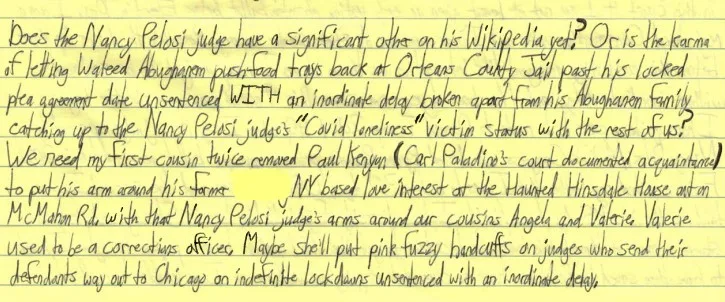 Does the Nancy Pelosi judge have a significant other on his Wikipedia yet? Or is the karma
of letting Waleed Abughanem push food trays back at Orleans County Jail past his locked
plea agreement date unsentenced WITH an inordinate delay broken apart from his Abughanem family
catching up to the Nancy Pelosi judge's "Covid loneliness" victim status with the rest of us?
We need my first cousin twice removed Paul Kenyon (Carl Paladino's court documented acquaintance)
to put his arm around his former NY based love interest at the Haunted Hinsdale House out on
McMahon Rd. with that Nancy Pelosi judge's arms around our cousins Angela and Valerie. Valerie
used to be a corrections officer. Maybe she'll put pink fuzzy handcuffs on judges who send their
defendants way out to Chicago on indefinite lockdowns unsentenced with an inordinate delay.